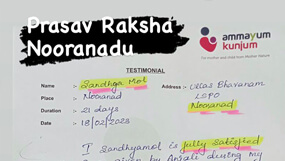 Prasav Raksha
Nooranadu
ammayum
kunjum
For mother and child from Mother Nature
TESTIMONIAL
Name : Sandhya Mol
Address : Ullas Bhavanam
Place : Nooranad
LSPO
Duration : 21 days
Nooranad
Date : 18/02/2023
I Sandhyamol is fully satisfied
given by Anjali during my